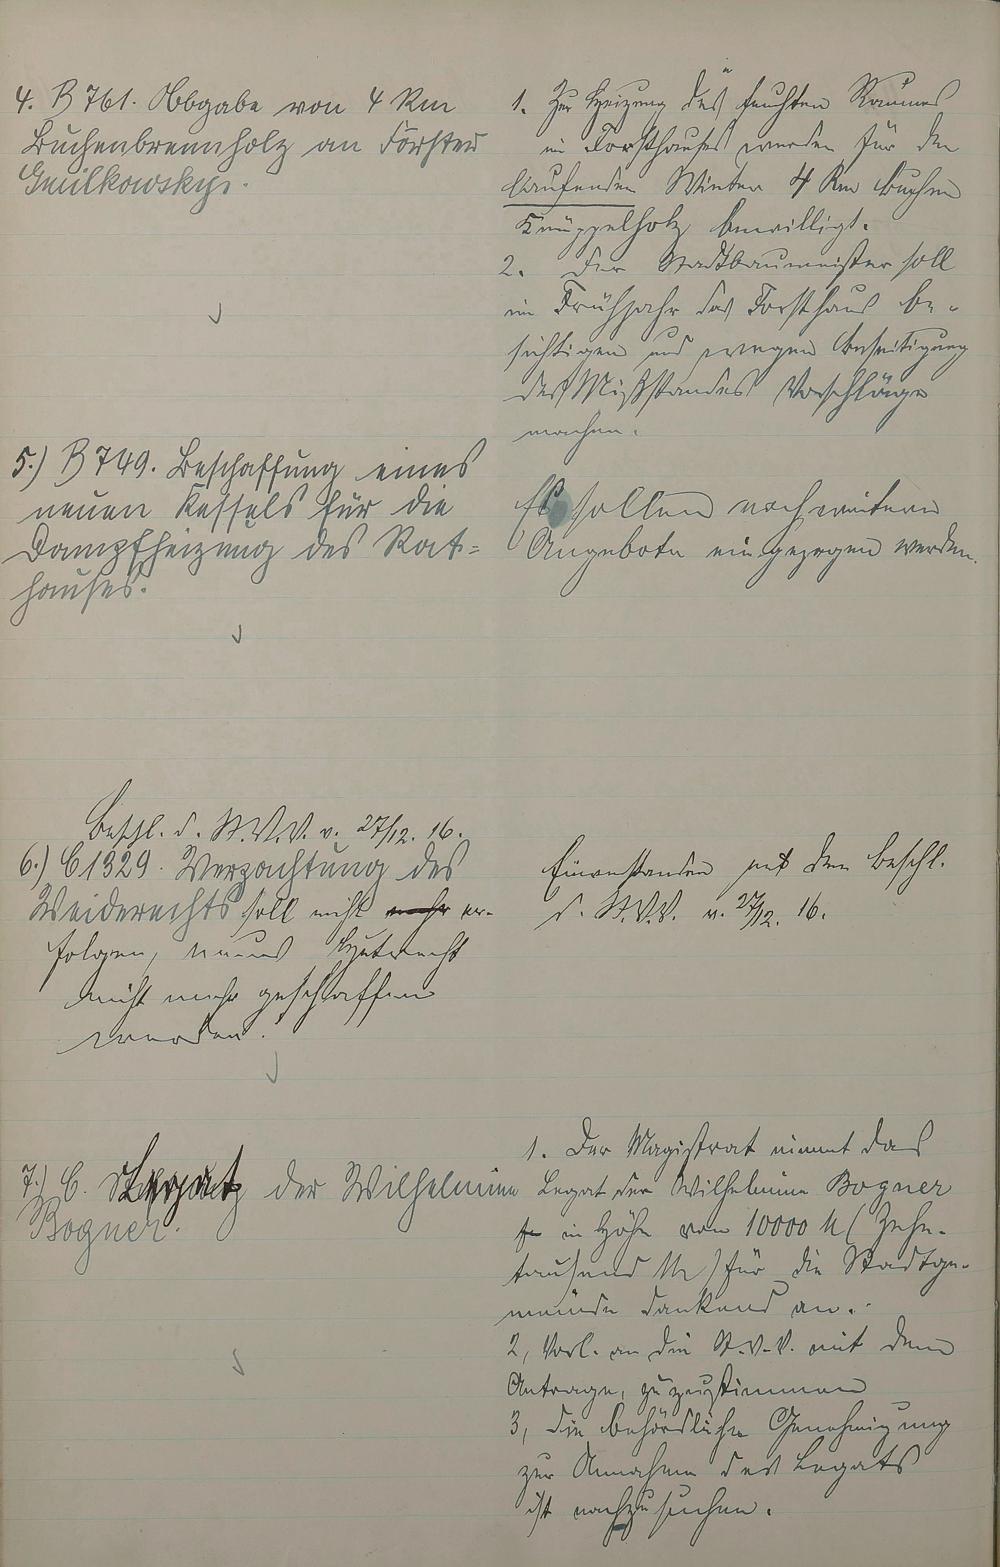 4. B 761. Abgabe von 4 Rm
Buchenbrennholz an Förster
Gmilkowsky.
1. Zur Heizung des feuchten Raumes
im Forsthause werden für den
laufenden Winter 4 Rm buchen
Knüppelholz bewilligt.
2. Der Stadtbaumeister soll
im Frühjahr das Forsthaus be-
sichtigen und wegen Beseitigung
des Mißstandes Vorschläge
machen.
5.) B 749. Beschaffung eines
neuen Kessels für die
Dampfheizung des Rat=
hauses.
Es sollen noch weitere
Angebote eingezogen werden.
Beschl. d. St.V.V. v. 27/12. 16.
6.) C 1329. Verpachtung des
Weiderechts soll nicht mehr er-
folgen, neues Hutrecht
nicht mehr geschaffen
werden.
Einverstanden mit dem Beschl.
d. St.V.V. v. 27/12. 16.
7.) C. Legat der Wilhelmine
Bogner.
1. Der Magistrat nimmt das
Legat der Wilhelmine Bogner
in Höhe von 10000 M (Zehn-
tausend M) für die Stadtge-
meinde dankend an.
2, Vorl. an die St.V.V. mit dem
Antrage, zuzustimmen
3, die behördliche Genehmigung
zur Annahme des Legats
ist nachzusuchen.